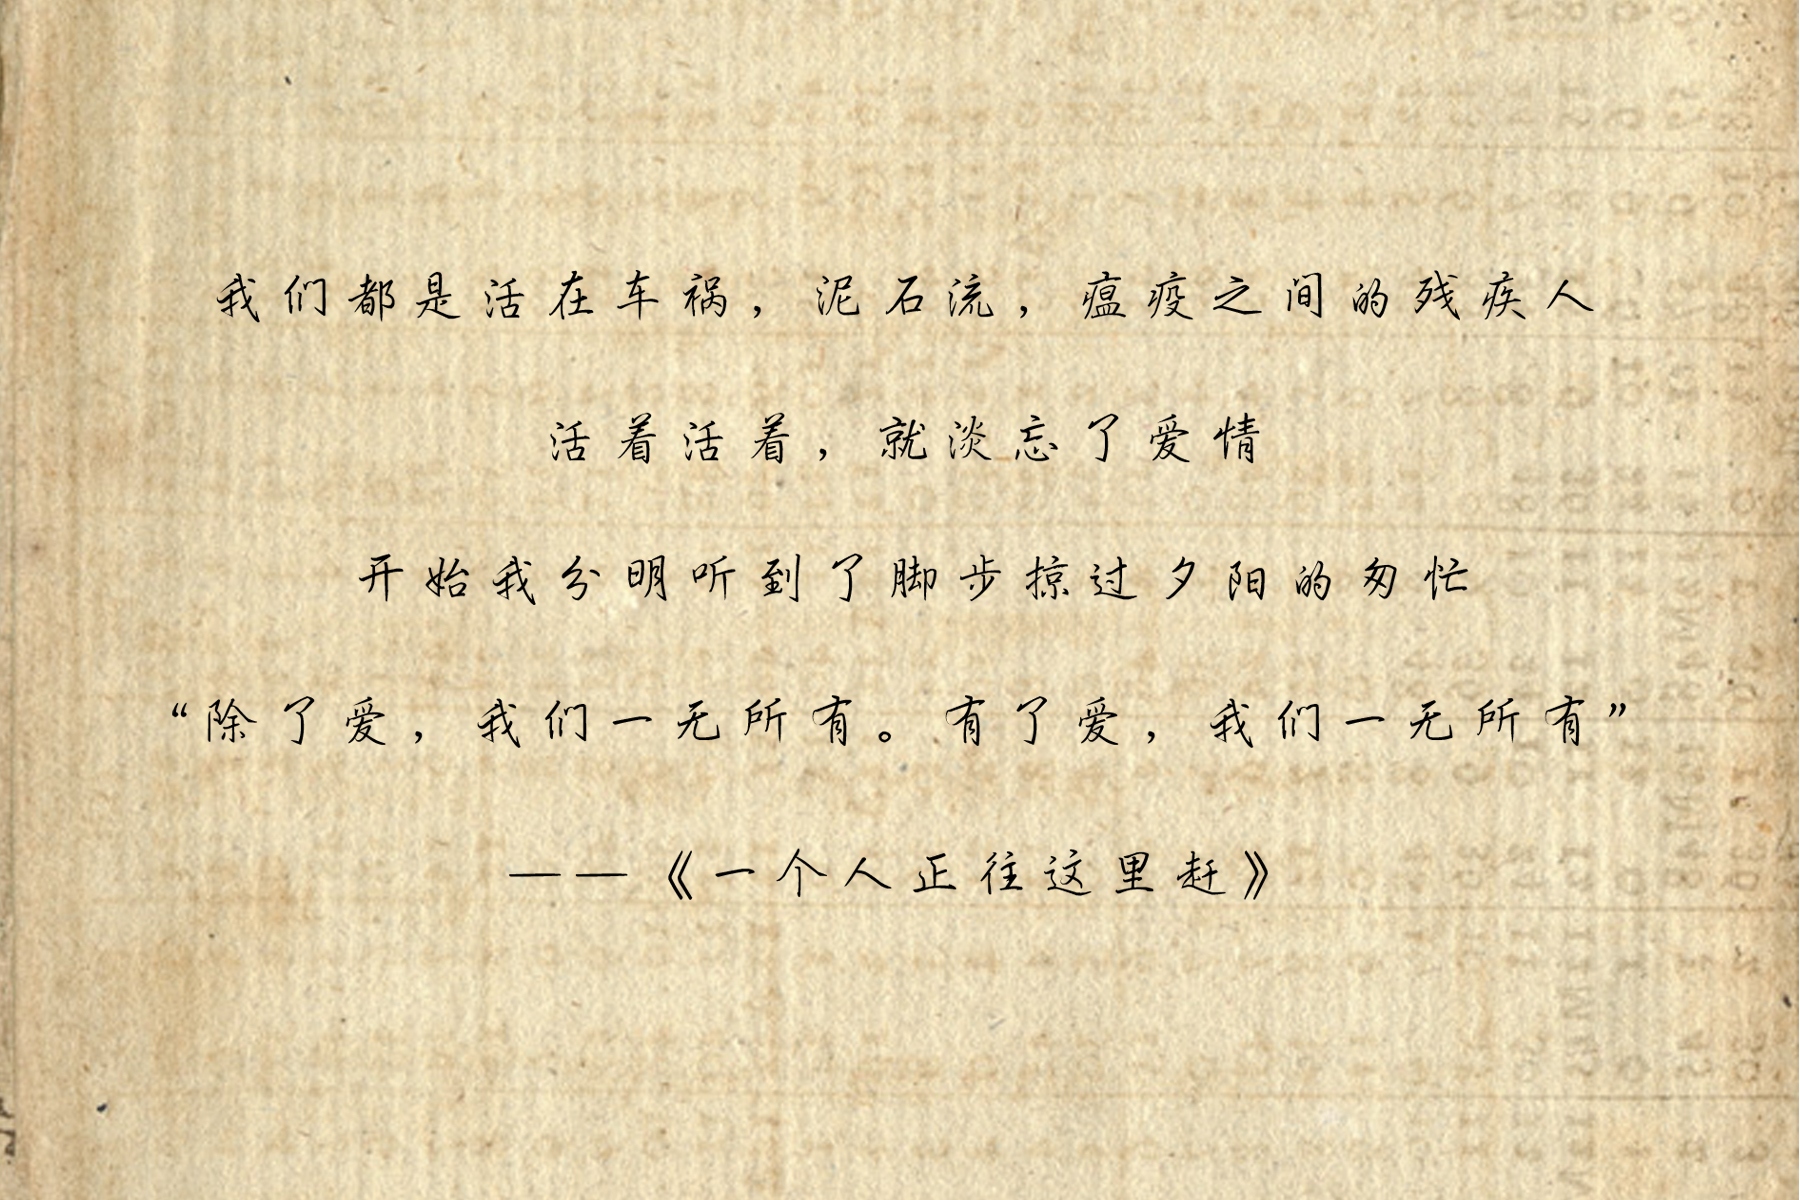 我们都是活在车祸，泥石流，瘟疫之间的残疾人
活着活着，就淡忘了爱情
开始我分明听到了脚步掠过夕阳的匆忙
“除了爱，我们一无所有。有了爱，我们一无所有”
——《一个人正往这里赶》